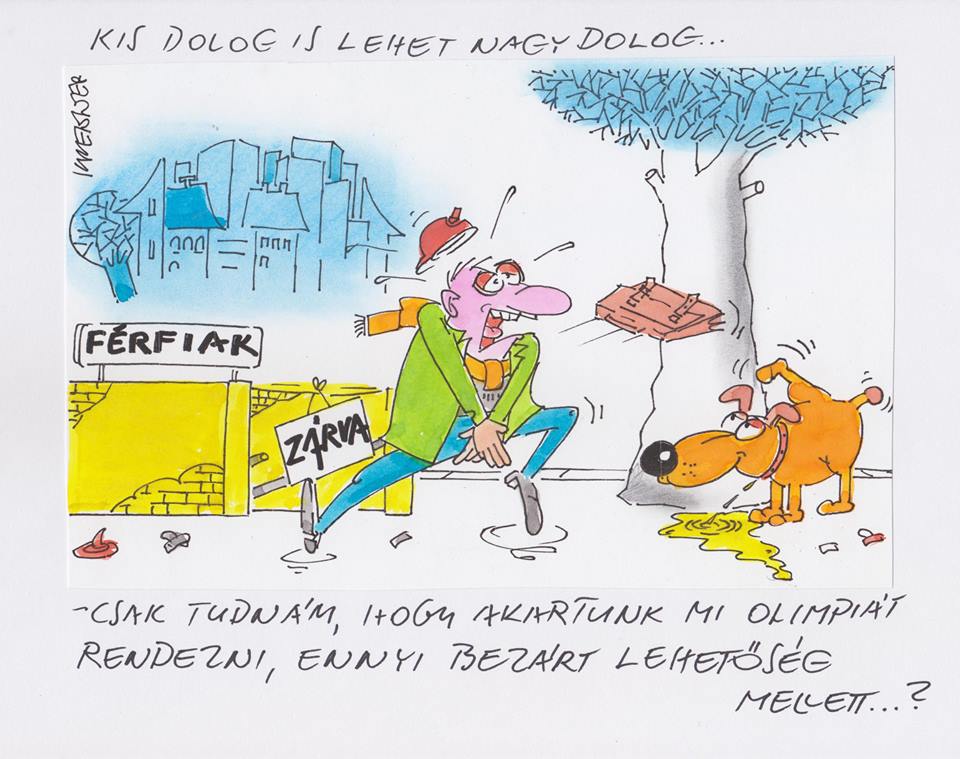 KIS DOLOG IS LEHET NAGY DOLOG...
FÉRFIAK
ZÁRVA
-CSAK TUDNÁM, HOGY AKARTUNK MI OLIMPIÁT
RENDEZNI, ENNYI BEZÁRT LEHETŐSÉG
MELLETT...?